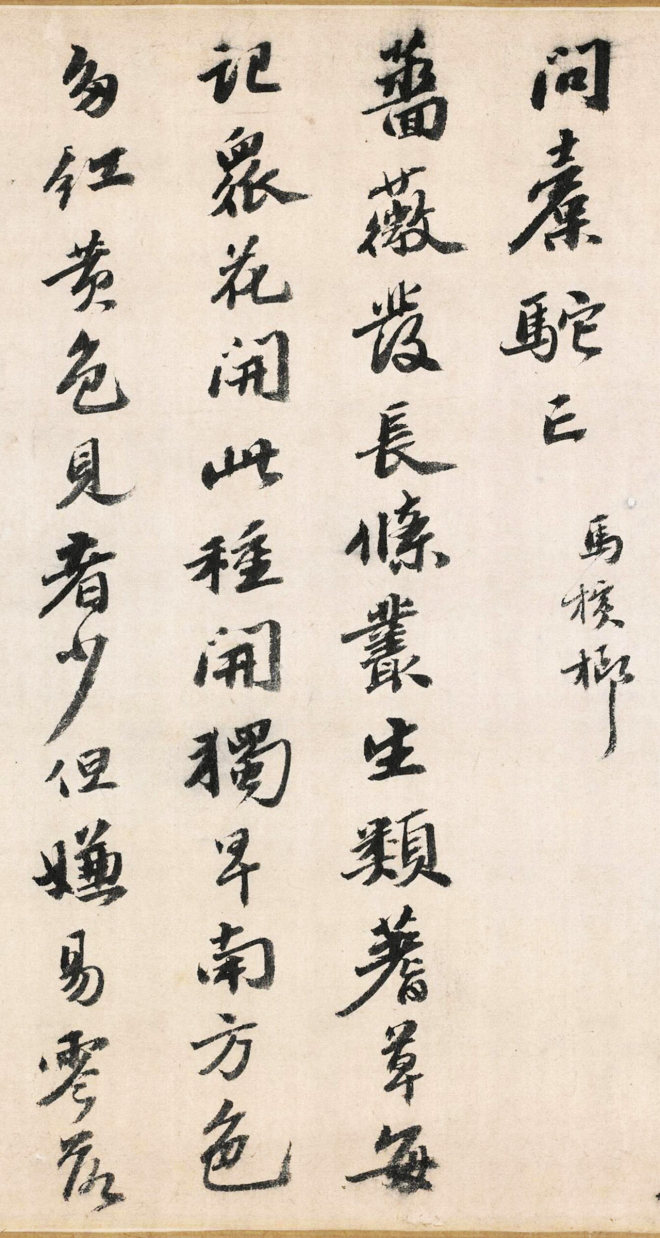 問橐駝
馬檳榔
薔薇發長條叢生類蓍草每
記衆花開此種開獨早南方色
多紅黃色見者少但嫌易零落